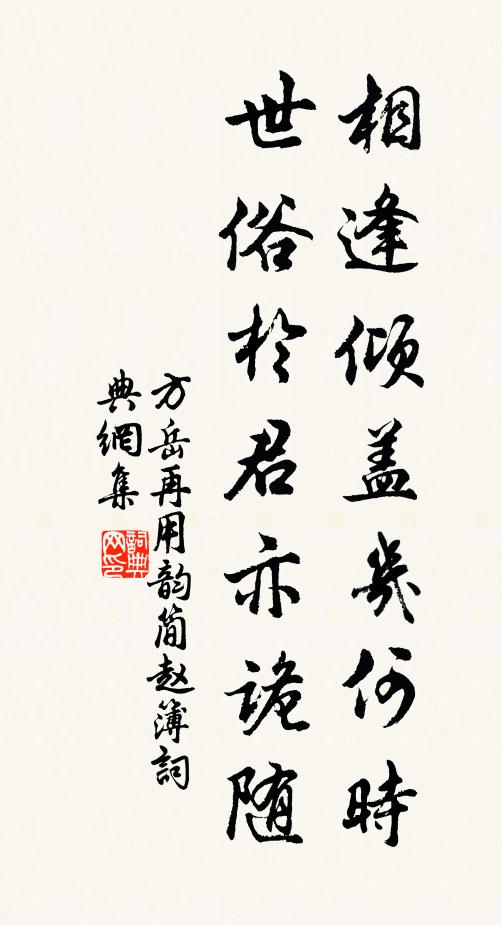 相逢倾盖几何時
世俗於君亦詭随
方岳再用韵简赵簿詞
典網集
詞典
网印